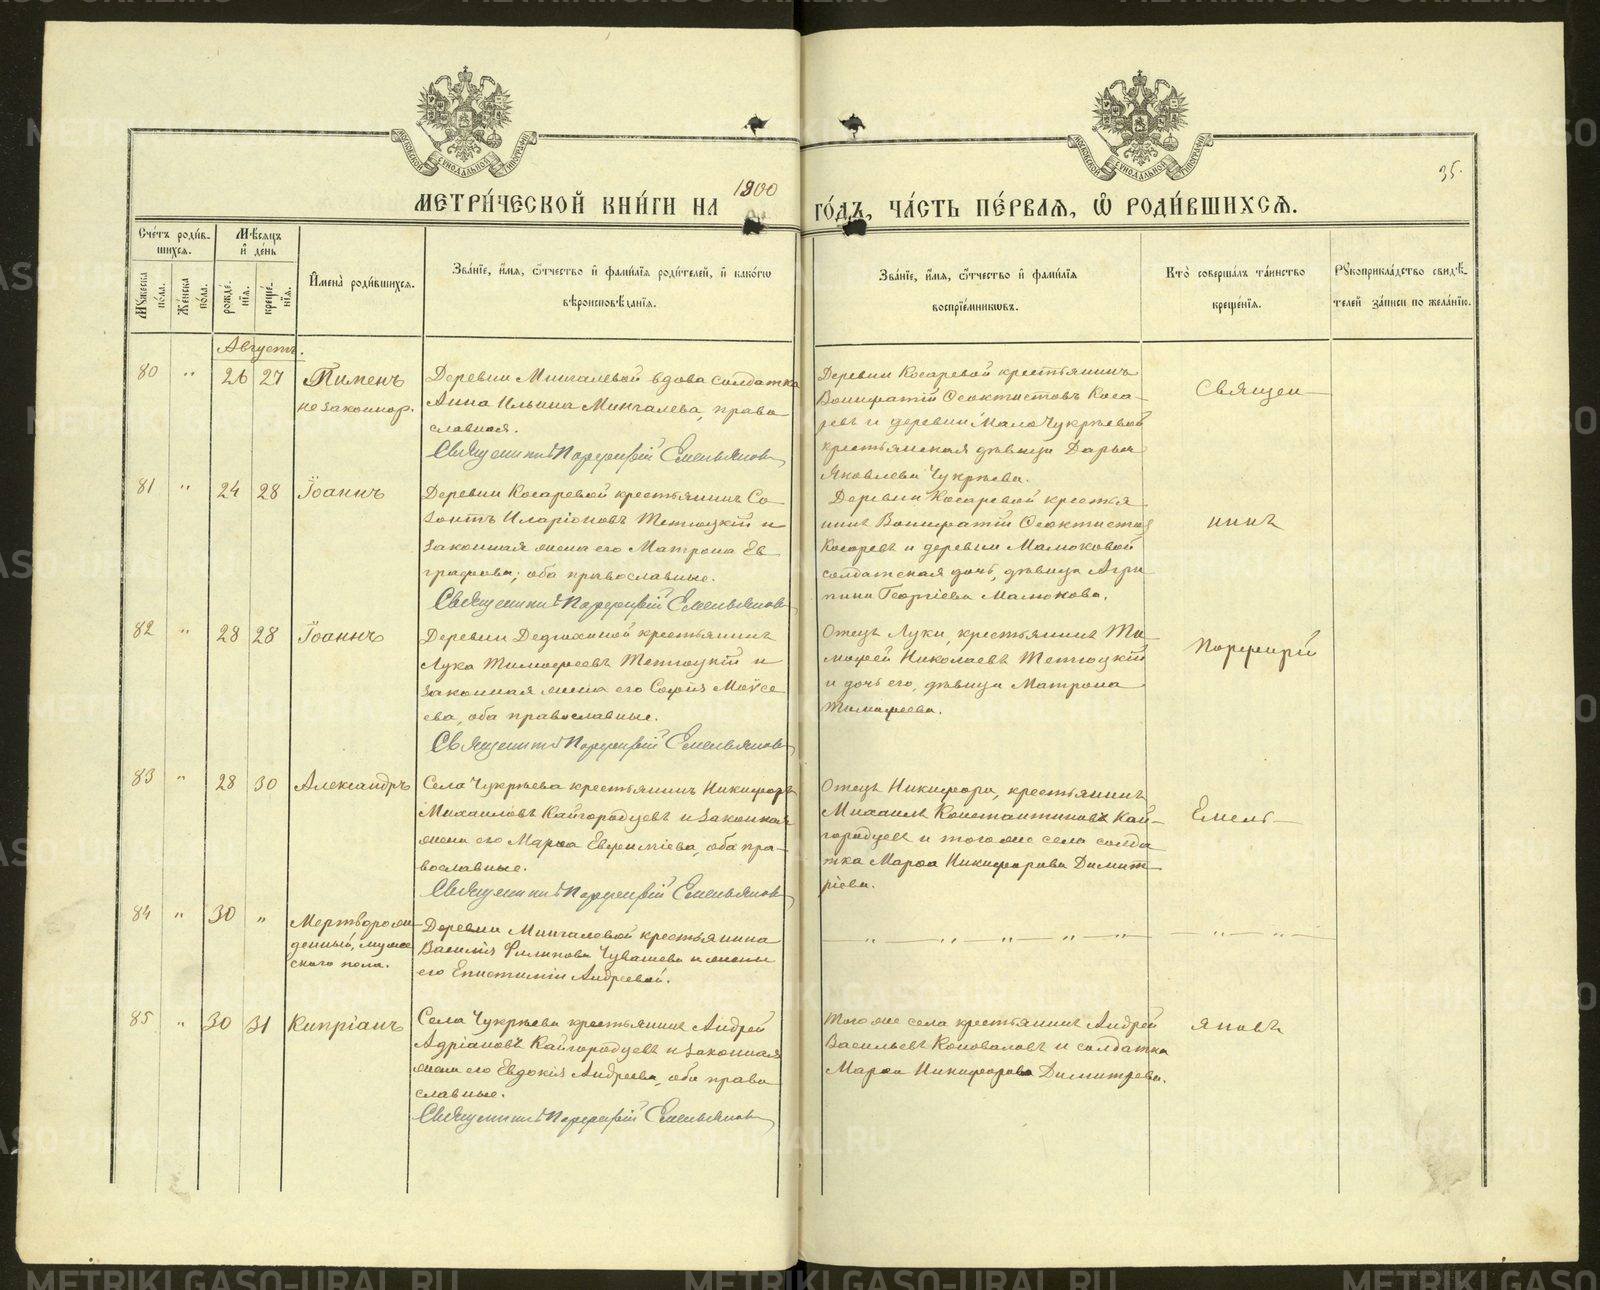 МЕТРИ́ЧЕСКОЙ КНИ́ГИ НА 1900 ГО́ДЪ, ЧА́СТЬ ПЕ́РВАЯ, Ѡ РОДИ́ВШИХСЯ.
35.
Сче́тъ роди́в-
шихся.
Мѣ́сяцъ
и де́нь
Му́жеска
по́ла.
Же́нска
по́ла.
рожде́-
нія.
креще́-
нія.
Имена̀ роди́вшихся.
Зва́ніе, и́мя, о́тчество и фами́лія роди́телей, и како́гѡ
вѣроисповѣ́данія.
Зва́ніе, и́мя, о́тчество и фами́лія
воспріе́мниковъ.
Кто̀ соверша́лъ та́инство
креще́нія.
Рукоприкла́дство свидѣ́-
телей за́писи по жела́нію.
Августъ.
80 " 26 27 Пименъ
незаконнор.
Деревни Мингалевой вдова солдатка
Анна Ильина Мингалева, право
славная.
Священникъ Порфирій Емельяновъ
Деревни Косаревой крестьянинъ
Вонифатій Ѳеоктистовъ Коса-
ревъ и деревни МалоЧукрѣевой
крестьянская дѣвица Дарья
Яковлева Чукрѣева.
Священ-
81 " 24 28 Іоаннъ
Деревни Косаревой крестьянинъ Со
зонтъ Иларіоновъ Тетюцкій и
законная жена его Матрона Ев
графова, оба православные.
Священникъ Порфирій Емельяновъ
Деревни Косаревой крестья
нинъ Вонифатій Ѳеоктистовъ
Косаревъ и деревни Мамоковой
солдатская дочь, дѣвица Агри
пина Георгіева Мамокова.
никъ
82 " 28 28 Іоаннъ
Деревни Дедюхиной крестьянинъ
Лука Тимофеевъ Тетюцкій и
законная жена его Софія Моѵсе
ева, оба православные.
Священникъ Порфирій Емельяновъ
Отецъ Луки, крестьянинъ Ти
мофей Николаевъ Тетюцкій
и дочь его, дѣвица Матрона
Тимофеева.
Порфирій
83 " 28 30 Александръ
Села Чукрѣева крестьянинъ Никифоръ
Михаиловъ Кайгородцевъ и законная
жена его Марѳа Евфиміева, оба пра-
вославные.
Священникъ Порфирій Емельяновъ
Отецъ Никифора, крестьянинъ
Михаилъ Константиновъ Кай-
городцевъ и того же села солда
тка Марѳа Никифорова Димит-
ріева.
Емель-
84 " 30 " Мертворож-
денный, муже
скаго пола.
Деревни Мингалевой крестьянина
Василія Филипова Чувашева и жены
его Епистиміи Андреевой.
— " — " — " — " — " —
— " — " — " —
85 " 30 31 Кипріанъ
Села Чукрѣева крестьянинъ Андрей
Адріановъ Кайгородцевъ и законная
жена его Евдокія Андреева, оба право
славные.
Священникъ Порфирій Емельяновъ
Того же села крестьянинъ Андрей
Васильевъ Коноваловъ и солдатка
Марѳа Никифорова Димитрева.
яновъ
METRIKI.GASO-URAL.RU